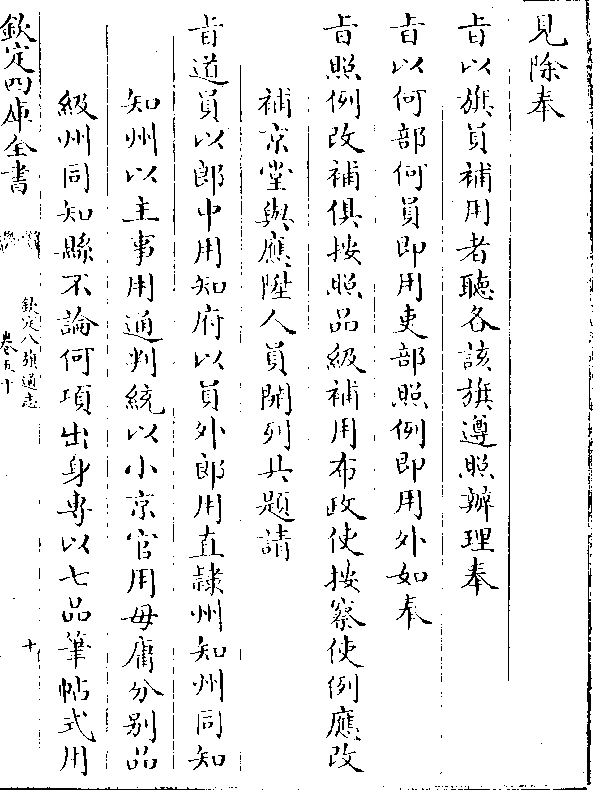 見除奉
㫖以旗員補用者聽各該旗遵照辦理奉
㫖以何部何員即用吏部照例即用外如奉
㫖照例改補俱按照品級補用布政使按察使例應改
補京堂與應陞人員開列具題請
㫖道員以郎中用知府以員外郎用直𨽻州知州同知
知州以主事用通判統以小京官用毋庸分别品
級州同知縣不論何項出身專以七品筆帖式用
欽定四庫全書
欽定八旗通志
卷五十
十